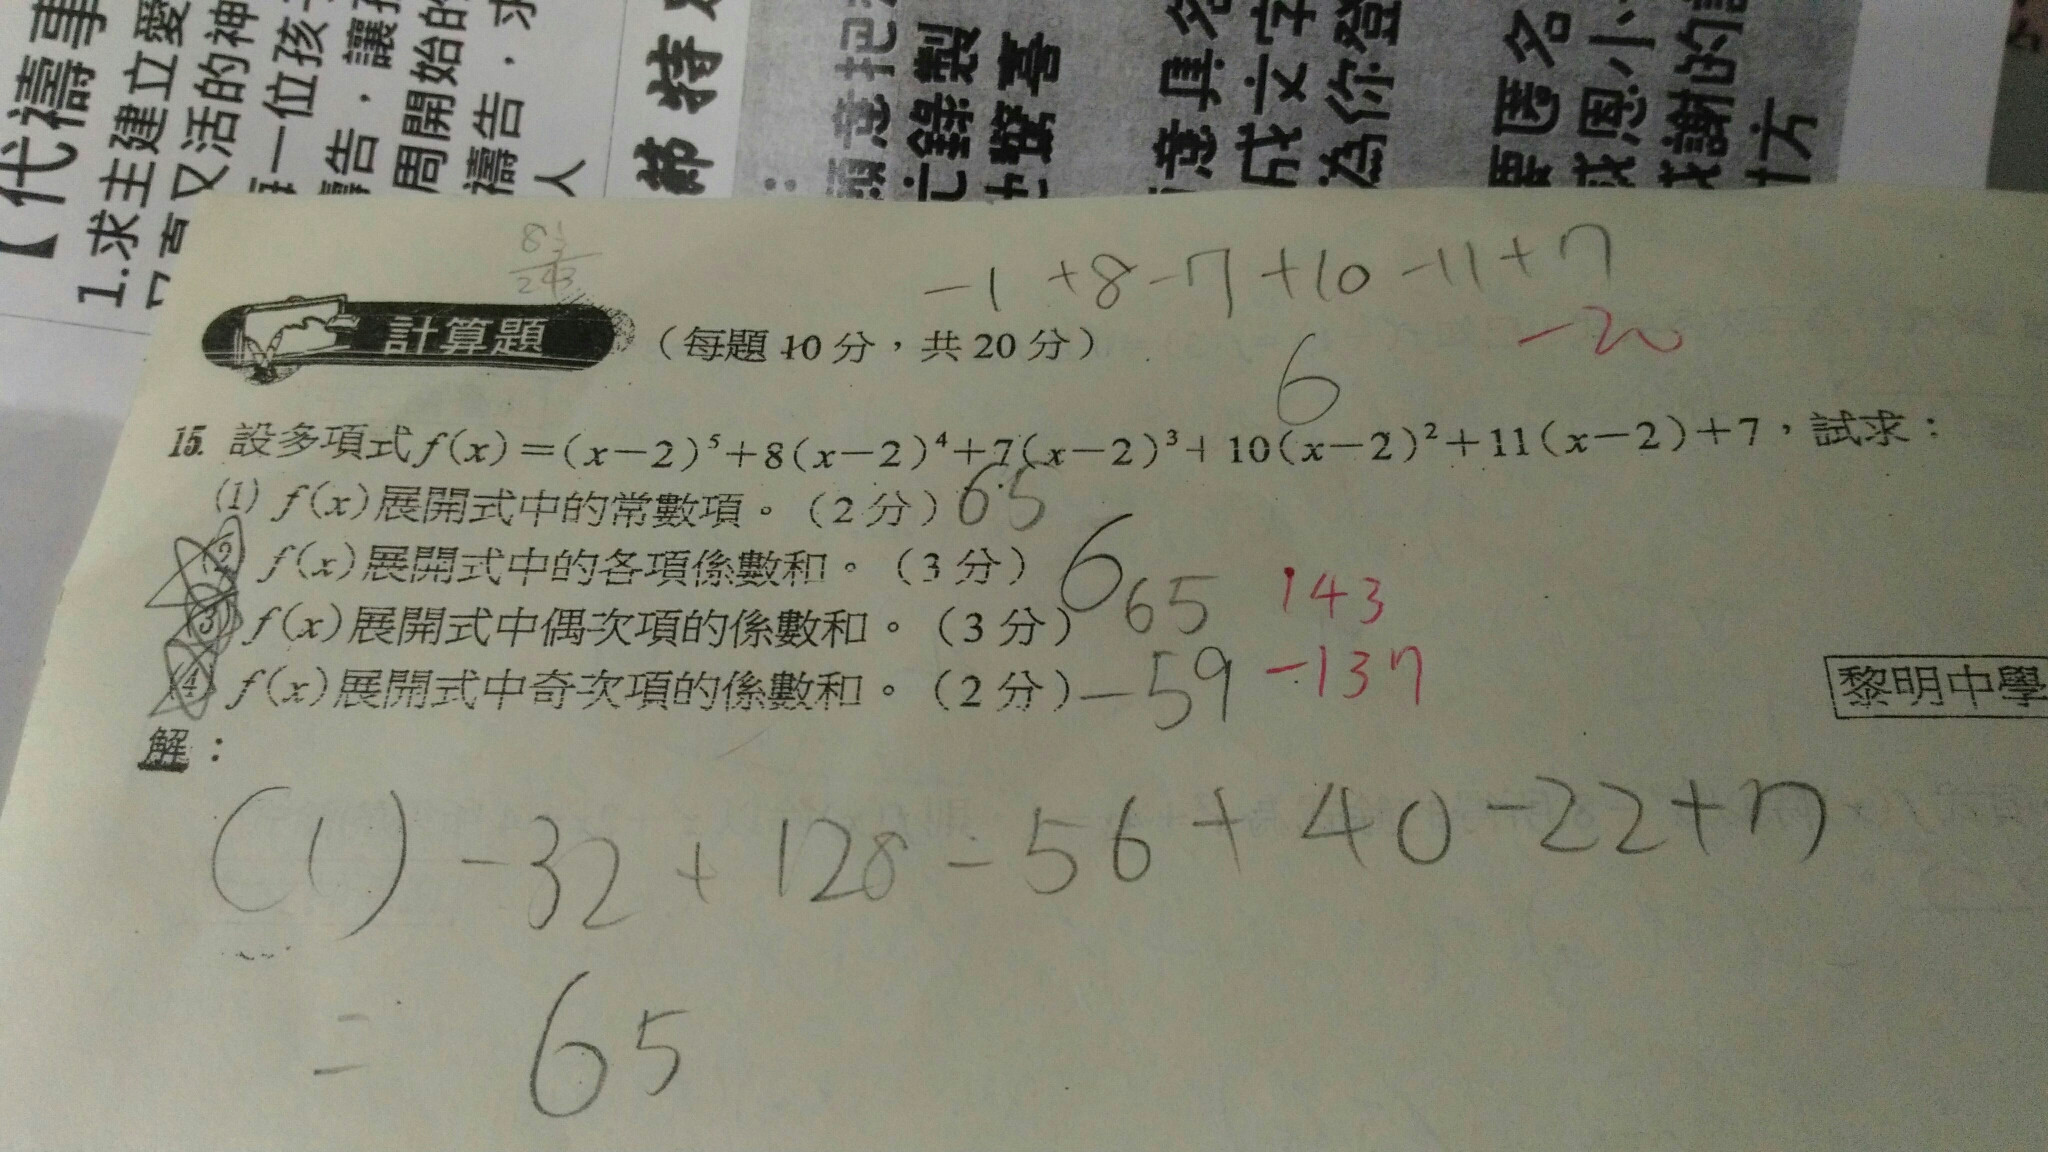 【代禱事
1.求主建立愛
又活的神
一位孩
禱告，讓
周開始的
禱告，求
人
特
意把
元錄製
意具名
成文字
為你登
匿名
感恩小
謝的
方
8 1/3
243
-1 +8-7+10-11+7
計算題 （每題 10 分，共 20 分）
-20
6
15. 設多項式 f(x)＝(x－2)⁵＋8(x－2)⁴＋7(x－2)³＋10(x－2)²＋11(x－2)＋7，試求：
(1) f(x)展開式中的常數項。（2 分）65
(2) f(x)展開式中的各項係數和。（3 分）6
(3) f(x)展開式中偶次項的係數和。（3 分）65 143
(4) f(x)展開式中奇次項的係數和。（2 分）-59 -137
黎明中學
解：
(1) -32+128-56+40-22+7
= 65